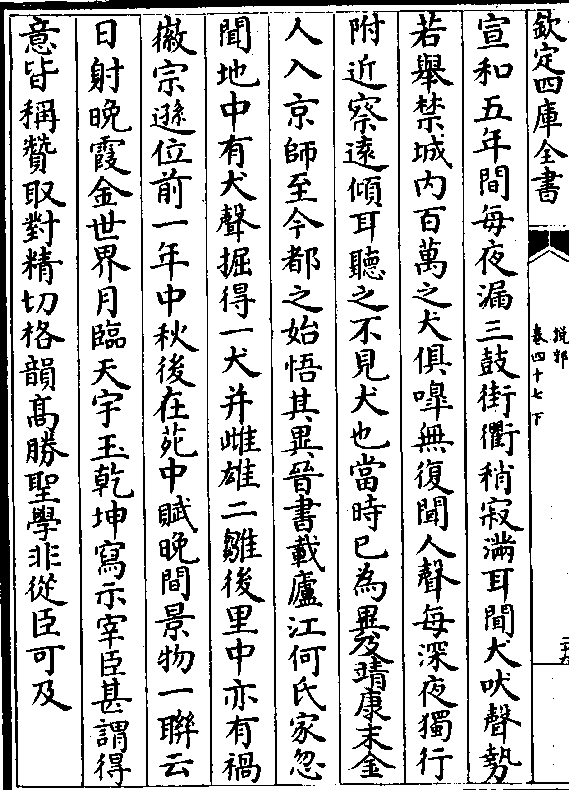 欽定四庫全書
說郛
卷四十七下
宣和五年間每夜漏三鼓街衢稍寂滿耳間犬吠聲勢
若舉禁城內百萬之犬俱嘷無復聞人聲每深夜獨行
附近察遠傾耳聽之不見犬也當時已為異及靖康末金
人入京師至今都之始悟其異晉書載廬江何氏家忽
聞地中有犬聲掘得一犬并雌雄二雛後里中亦有禍
徽宗遜位前一年中秋後在苑中賦晚間景物一聯云
日射晚霞金世界月臨天宇玉乾坤寫示宰臣甚謂得
意皆稱贊取對精切格韻髙勝聖學非從臣可及